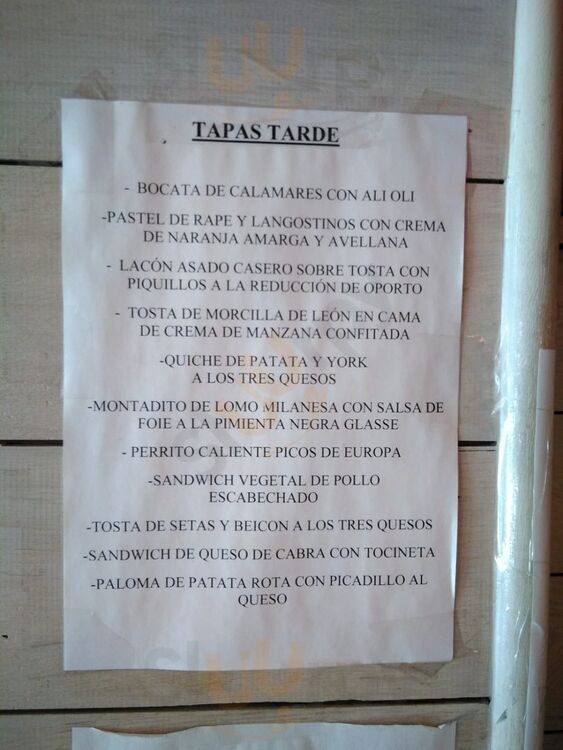 TAPAS TARDE
- BOCATA DE CALAMARES CON ALI OLI
-PASTEL DE RAPE Y LANGOSTINOS CON CREMA
DE NARANJA AMARGA Y AVELLANA
- LACÓN ASADO CASERO SOBRE TOSTA CON
PIQUILLOS A LA REDUCCIÓN DE OPORTO
- TOSTA DE MORCILLA DE LEÓN EN CAMA
DE CREMA DE MANZANA CONFITADA
-QUICHE DE PATATA Y YORK
A LOS TRES QUESOS
-MONTADITO DE LOMO MILANESA CON SALSA DE
FOIE A LA PIMIENTA NEGRA GLASSE
- PERRITO CALIENTE PICOS DE EUROPA
-SANDWICH VEGETAL DE POLLO
ESCABECHADO
-TOSTA DE SETAS Y BEICON A LOS TRES QUESOS
-SANDWICH DE QUESO DE CABRA CON TOCINETA
-PALOMA DE PATATA ROTA CON PICADILLO AL
QUESO